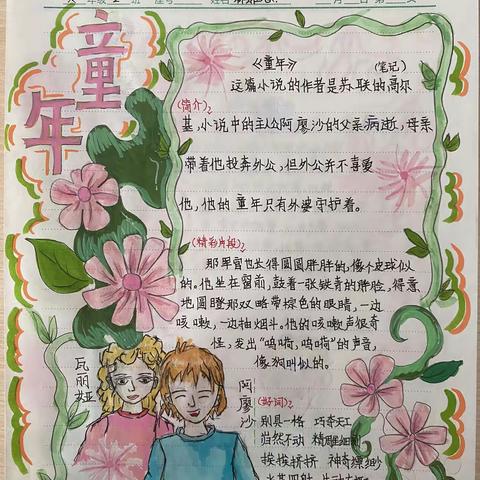 年级 2 班 姓名
童年
《童年》 (笔记)
(简介):
这篇小说的作者是苏联的高尔
基,小说中的主人公阿廖沙的父亲病逝,母亲
带着他投奔外公,但外公并不喜爱
他,他的童年只有外婆守护着。
(精彩片段):
那军官也长得圆圆胖胖的,像个皮球似
的。他坐在窗前,鼓着一张铁青的胖脸,得意
地圆瞪那双略带棕色的眼睛,一边
咳嗽,一边抽烟斗。他的咳嗽声很奇
怪,发出“呜嗬,呜嗬”的声音,
像狗叫似的。
瓦丽娅
阿廖沙
(好词):
别具一格 巧夺天工
岿然不动 精雕细刻
挨挨挤挤 神奇缥缈